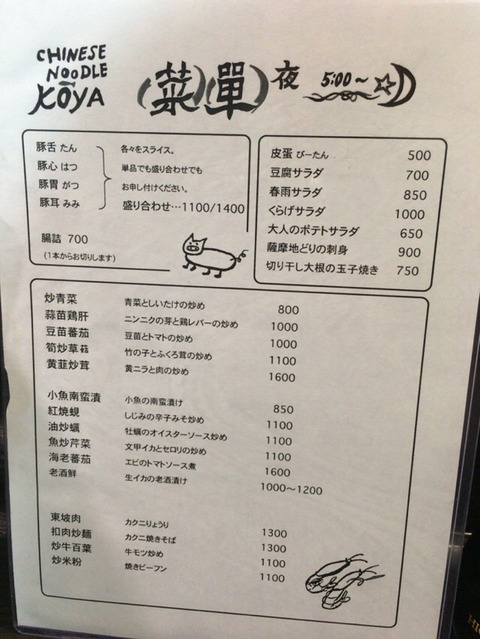 CHINESE
NOODLE
KŌYA
(菜)(單) 夜 5:00～
豚舌 たん
豚心 はつ
豚胃 がつ
豚耳 みみ
各々をスライス。
単品でも盛り合わせでも
お申し付けください。
盛り合わせ…1100/1400
腸詰 700
(1本からお切りします)
皮蛋 ぴーたん 500
豆腐サラダ 700
春雨サラダ 850
くらげサラダ 1000
大人のポテトサラダ 650
薩摩地どりの刺身 900
切り干し大根の玉子焼き 750
炒青菜 青菜としいたけの炒め 800
蒜苗鶏肝 ニンニクの芽と鶏レバーの炒め 1000
豆苗蕃茄 豆苗とトマトの炒め 1000
筍炒草菇 竹の子とふくろ茸の炒め 1100
黄韮炒茸 黄ニラと肉の炒め 1600
小魚南蛮漬 小魚の南蛮漬け 850
紅焼蜆 しじみの辛子みそ炒め 1100
油炒蠣 牡蠣のオイスターソース炒め 1100
魚炒芹菜 文甲イカとセロリの炒め 1100
海老蕃茄 エビのトマトソース煮 1600
老酒鮮 生イカの老酒漬け 1000～1200
東坡肉 カクニりょうり 1300
扣肉炒麺 カクニ焼きそば 1300
炒牛百葉 牛モツ炒め 1100
炒米粉 焼きビーフン 1100